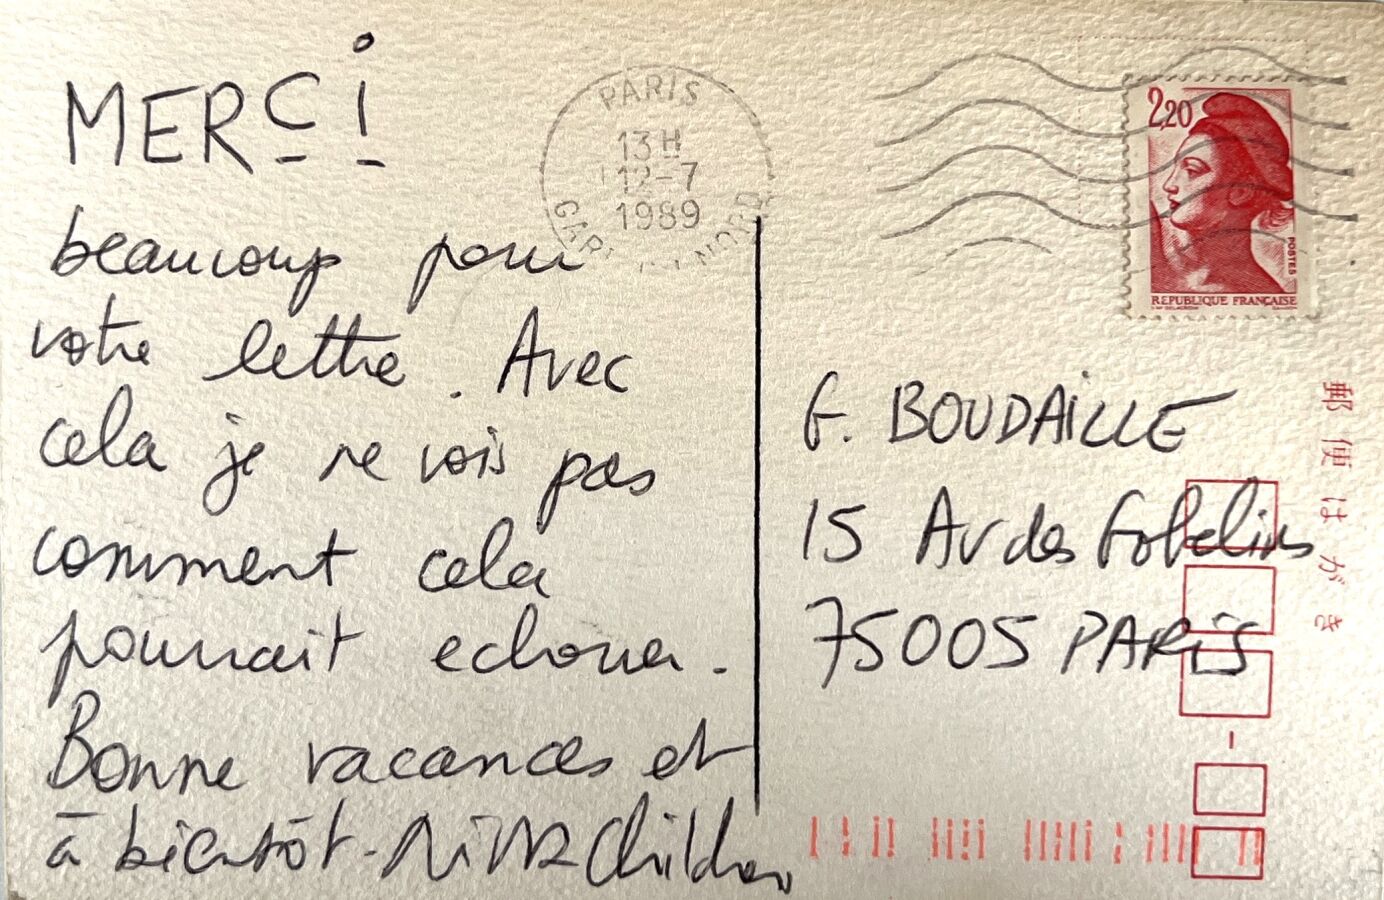 MERCI
beaucoup pour
votre lettre. Avec
cela je ne vois pas
comment cela
pourrait echouer.
Bonne vacances et
à bientôt - Nina Childress
PARIS
13H
12-7
1989
GARE DU NORD
2,20
POSTES
REPUBLIQUE FRANÇAISE
G. BOUDAILLE
15 Av des Gobelins
75005 PARIS
郵便はがき